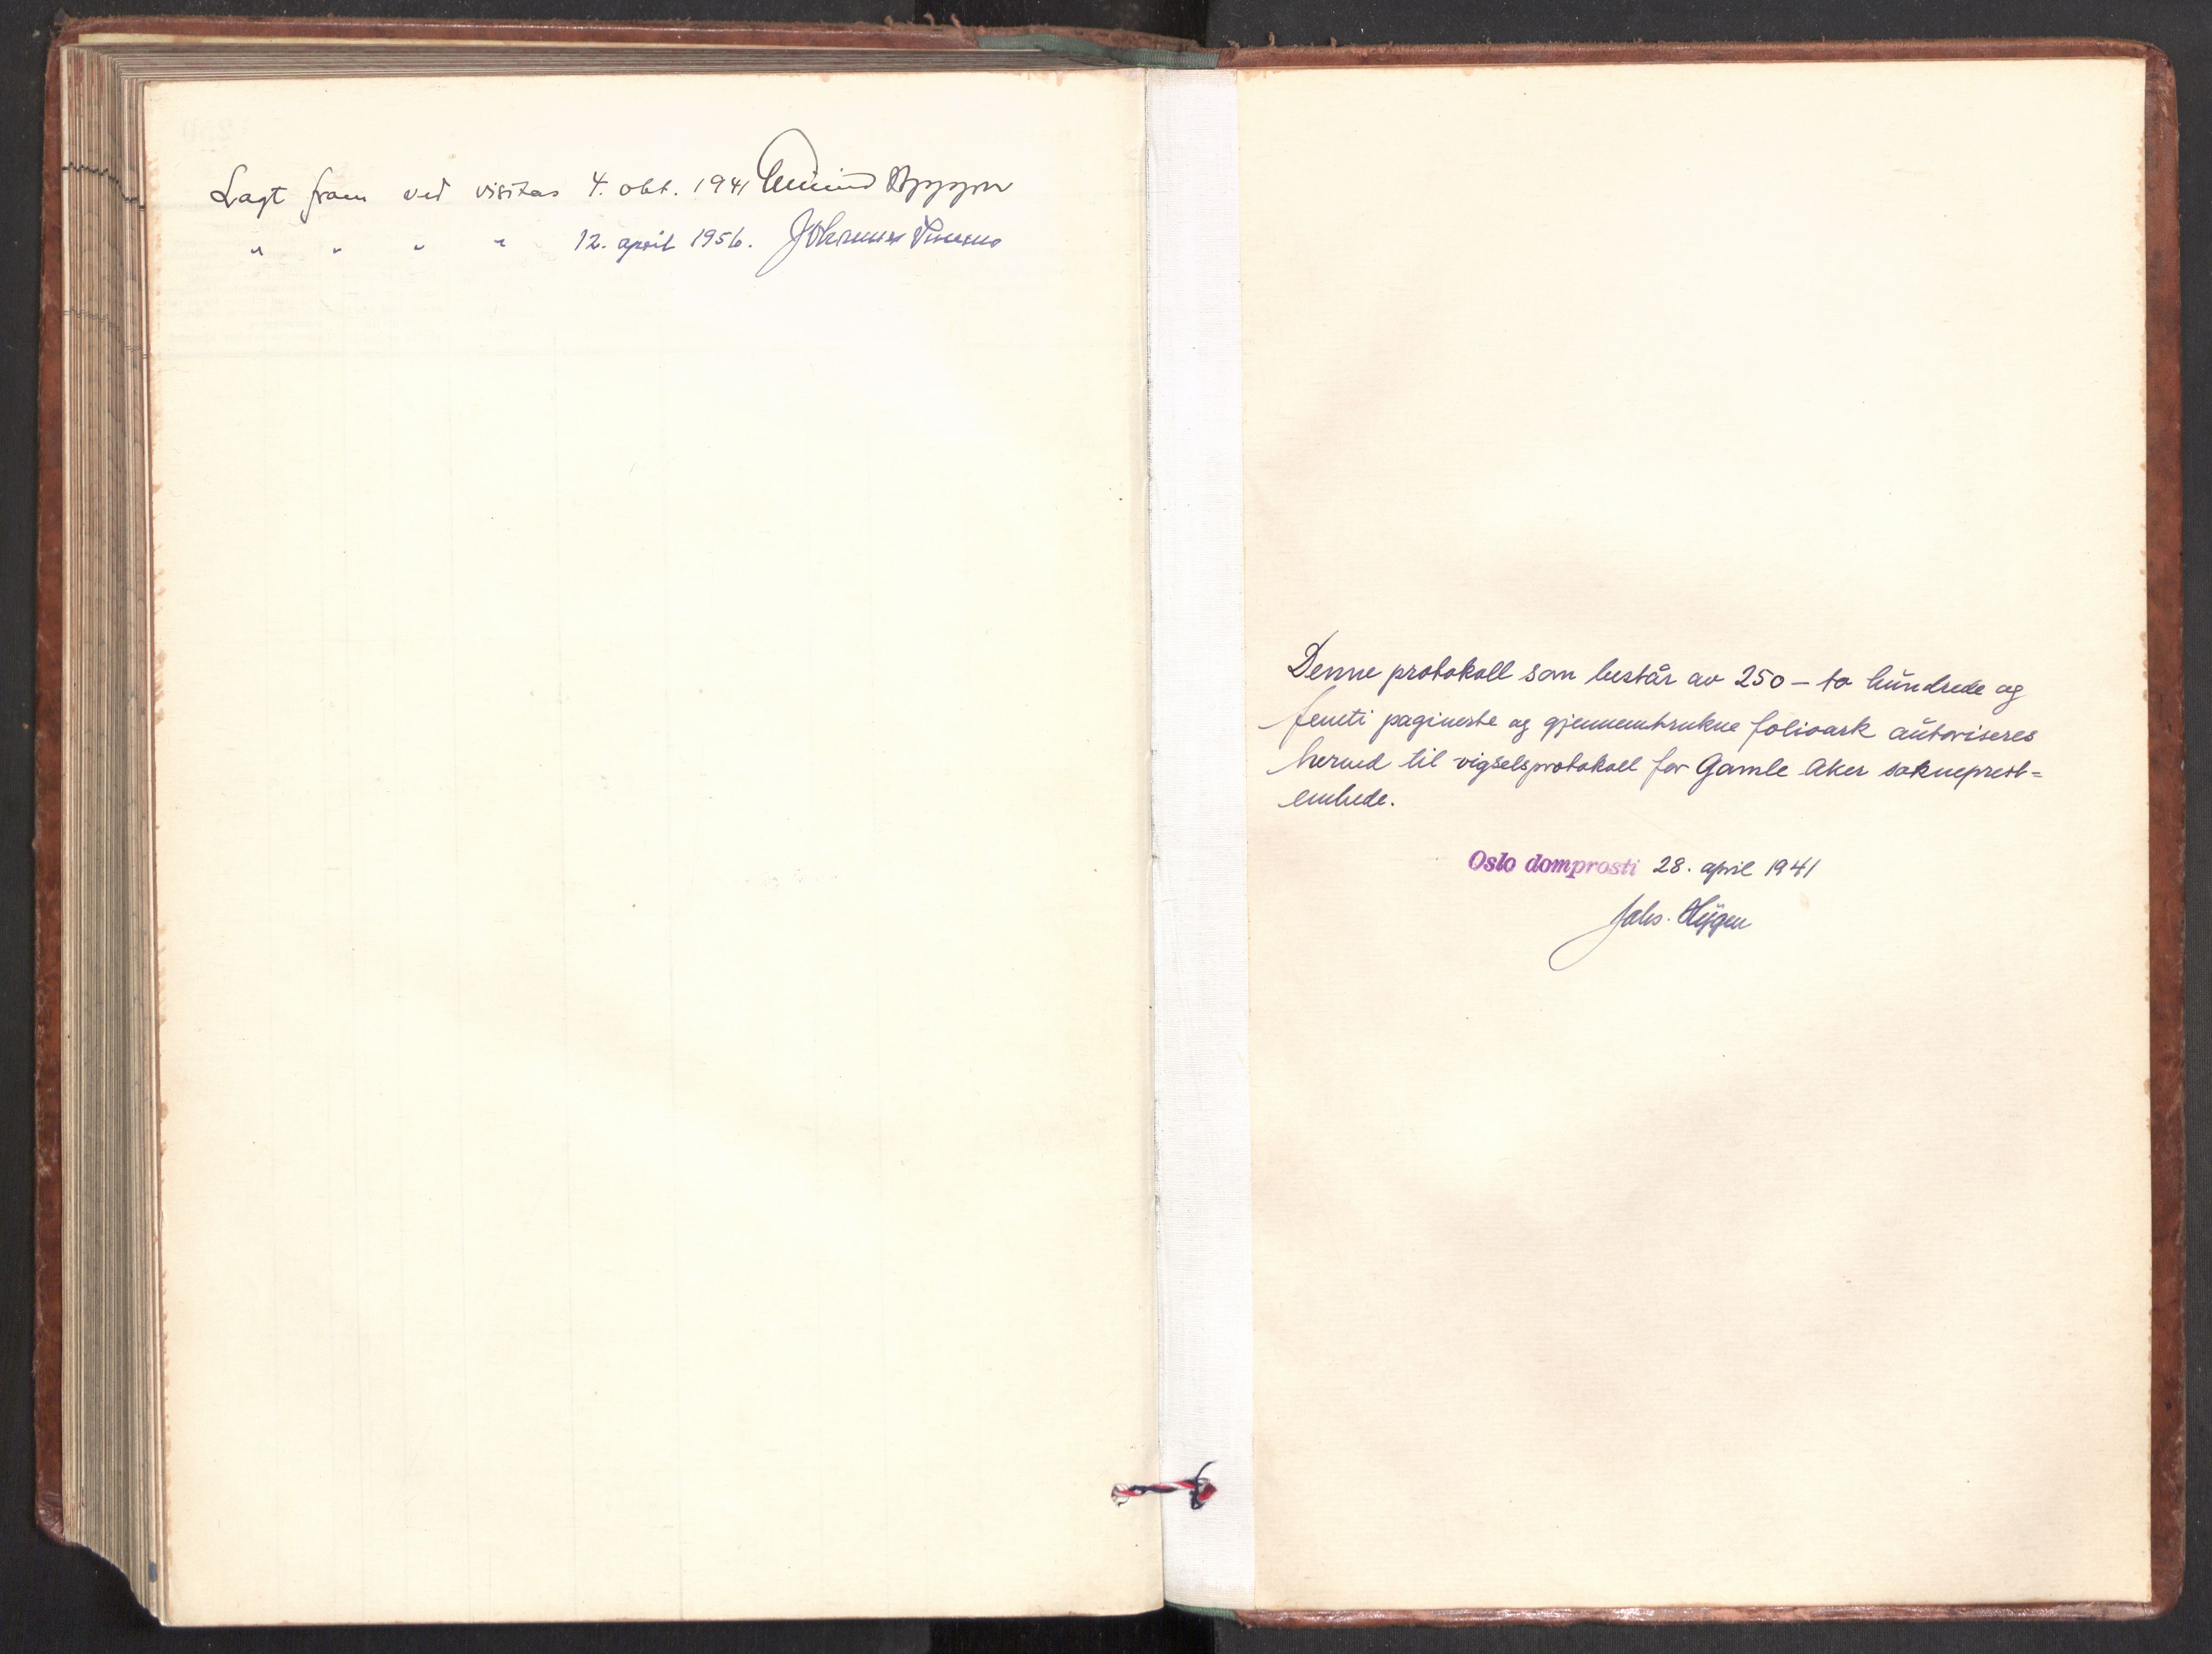 Lagt fram ved visitas 4. okt. 1941 Eivind Berggrav
" " " " 12. april 1956. Johannes Smemo
Denne protokoll som består av 250 – to hundrede og
femti paginerte og gjennemtrukne folioark autoriseres
herved til vigselsprotokoll for Gamle Aker sokneprest=
embede.
Oslo domprosti 28. april 1941
Johs. Hygen